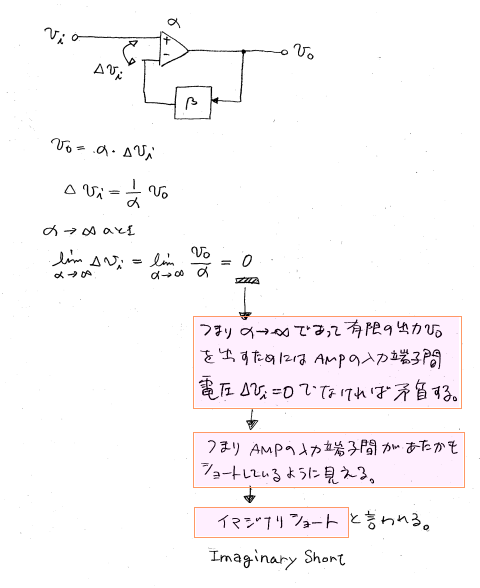 α
vi
+
-
Δvi
vo
β
vo = α・Δvi
Δvi = 1/α vo
α→∞のとき
lim α→∞ Δvi = lim α→∞ vo/α = 0
つまりα→∞であって有限の出力vo
を出すためにはAMPの入力端子間
電圧Δvi=0でなければ矛盾する。
つまりAMPの入力端子間があたかも
ショートしているように見える。
イマジナリショート と言われる。
Imaginary Short